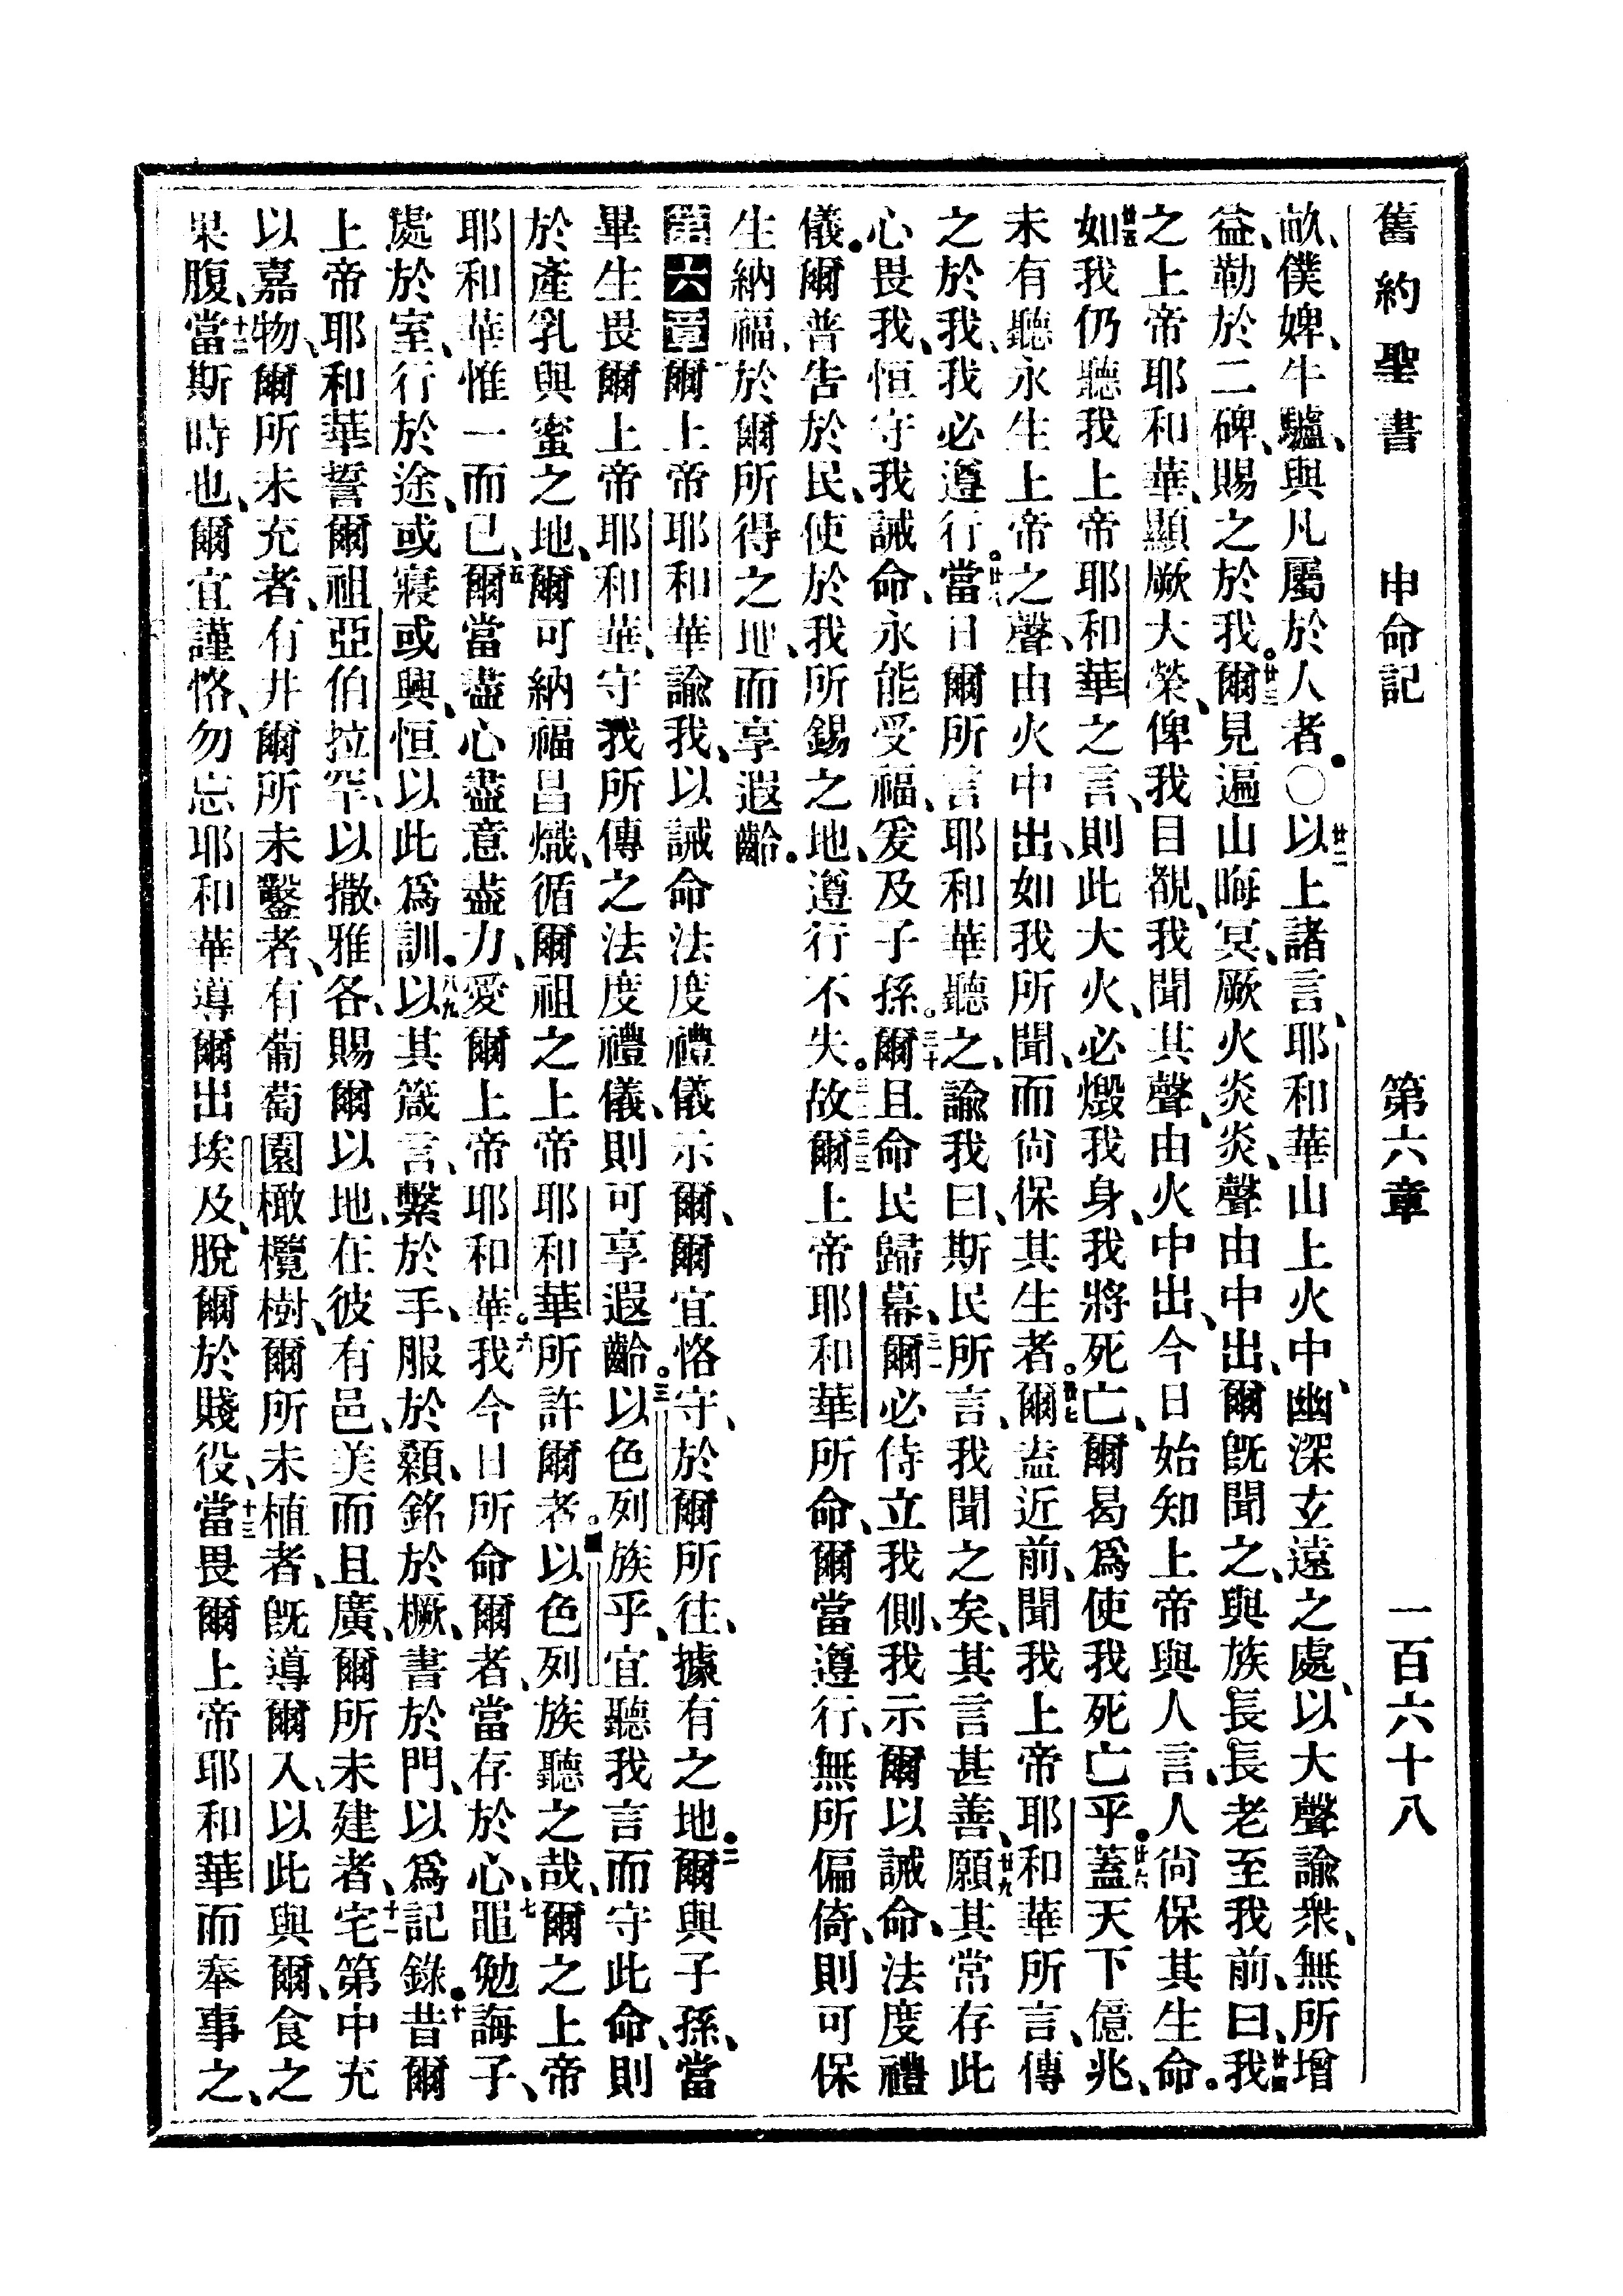 舊約聖書 申命記 第六章 一百六十八
畝、僕婢、牛驢、與凡屬於人者。○廿二以上諸言、耶和華山上火中、幽深玄遠之處、以大聲諭衆、無所增
益、勒於二碑、賜之於我。廿三爾見遍山晦冥、厥火炎炎、聲由中出、爾旣聞之、與族長、長老至我前、曰、廿四我
之上帝耶和華、顯厥大榮、俾我目覩、我聞其聲、由火中出、今日始知上帝與人言、人尙保其生命。
廿五如我仍聽我上帝耶和華之言、則此大火、必燬我身、我將死亡、爾曷爲使我死亡乎。廿六蓋天下億兆、
未有聽永生上帝之聲、由火中出、如我所聞、而尙保其生者。廿七爾盍近前、聞我上帝耶和華所言、傳
之於我、我必遵行。廿八當日爾所言、耶和華聽之、諭我曰、斯民所言、我聞之矣、其言甚善、廿九願其常存此
心畏我、恒守我誡命、永能受福、爰及子孫。三十爾且命民歸幕、三一爾必侍立我側、我示爾以誡命、法度禮
儀。爾普告於民、使於我所錫之地、遵行不失。三二三三故爾上帝耶和華所命、爾當遵行、無所偏倚、則可保
生納福、於爾所得之地、而享遐齡。
第六章一爾上帝耶和華諭我、以誡命法度禮儀示爾、爾宜恪守、於爾所往、據有之地。二爾與子孫、當
畢生畏爾上帝耶和華、守我所傳之法度禮儀、則可享遐齡。三以色列族乎、宜聽我言而守此命、則
於產乳與蜜之地、爾可納福昌熾、循爾祖之上帝耶和華所許爾者。四以色列族聽之哉、爾之上帝
耶和華惟一而已、五爾當盡心盡意盡力、愛爾上帝耶和華。六我今日所命爾者、當存於心、七黽勉誨子、
處於室、行於途、或寢或興、恒以此爲訓。八九以其箴言、繫於手、服於顙、銘於橛、書於門、以爲記錄。十昔爾
上帝耶和華誓爾祖亞伯拉罕、以撒、雅各、賜爾以地、在彼有邑、美而且廣、爾所未建者、十一宅第中充
以嘉物、爾所未充者、有井爾所未鑿者、有葡萄園橄欖樹、爾所未植者、旣導爾入、以此與爾、食之
果腹、十二當斯時也、爾宜謹恪、勿忘耶和華導爾出埃及、脫爾於賤役、十三當畏爾上帝耶和華而奉事之、